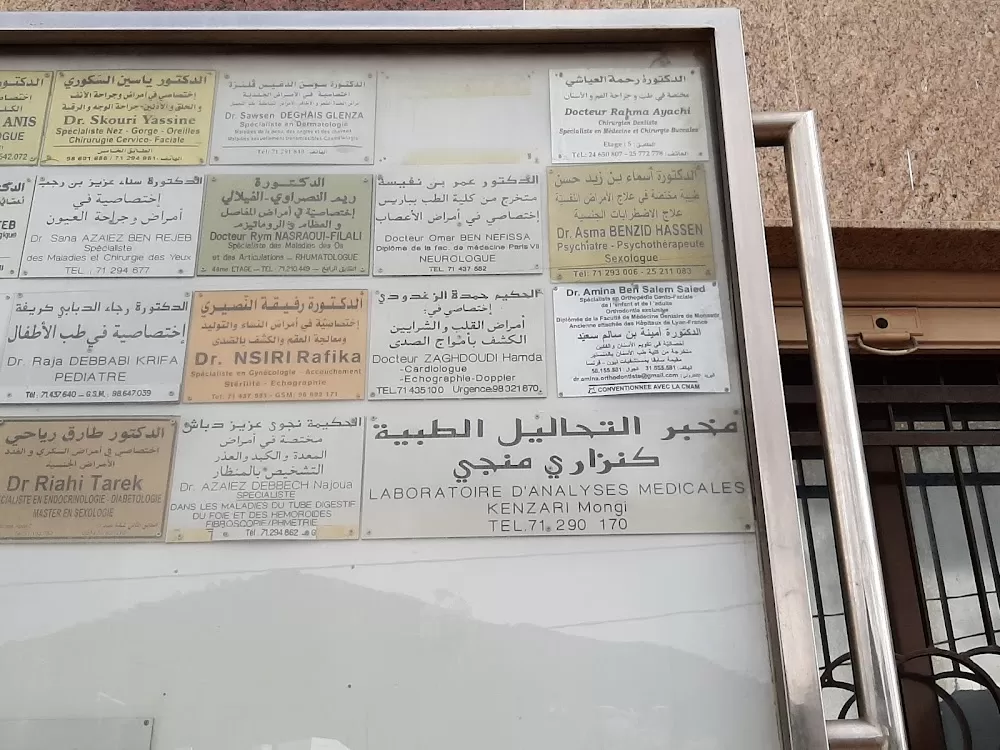 الدكتور
اختصاصي
ANIS
الدكتور ياسين السكوري
إختصاصي في أمراض وجراحة الأنف
والحلق والأذنين جراحة الوجه والرقبة
Dr. Skouri Yassine
Spécialiste Nez - Gorge - Oreilles
Chirurgie Cervico-Faciale
الطابق الخامس
الدكتورة سوسن الدغيس قلنزة
Dr. Sawsen DEGHAIS GLENZA
Spécialiste en Dermatologie
الدكتورة رحمة العياشي
مختصة في طب وجراحة الفم والأسنان
Docteur Rahma Ayachi
Chirurgien Dentiste
Spécialiste en Médecine et Chirurgie Buccales
Etage : 5
الدكتورة سناء عزيز بن رجب
إختصاصية في
أمراض وجراحة العيون
Dr. Sana AZAIEZ BEN REJEB
Spécialiste
des Maladies et Chirurgie des Yeux
TEL. : 71 294 677
الدكتورة
ريم النصراوي-الفيلالي
إختصاصية في أمراض المفاصل
و العظام و الروماتيزم
Docteur Rym NASRAOUI-FILALI
Spécialiste des Maladies des Os
et des Articulations - RHUMATOLOGUE
4ème ETAGE - TEL. : 71.210.449 - الطابق الرابع
الدكتور عمر بن نفيسة
متخرج من كلية الطب بباريس
إختصاصي في أمراض الأعصاب
Docteur Omar BEN NEFISSA
Diplômé de la fac. de médecine Paris VII
NEUROLOGUE
TEL. 71 437 882
الدكتورة أسماء بن زيد حسن
طبيبة مختصة في علاج الأمراض النفسية
علاج الاضطرابات الجنسية
Dr. Asma BENZID HASSEN
Psychiatre - Psychothérapeute
Sexologue
Tél: 71 293 006 - 25 211 083
الدكتورة رجاء الدبابي كريفة
إختصاصية في طب الأطفال
Dr. Raja DEBBABI KRIFA
PEDIATRE
Tél : 71.437.640 - G.S.M. : 98.647.039
الدكتورة رفيقة النصيري
إختصاصية في أمراض النساء والتوليد
ومعالجة العقم والكشف بالصدى
Dr. NSIRI Rafika
Spécialiste en Gynécologie - Accouchement
Stérilité - Echographie
الحكيم حمدة الزغدودي
إختصاصي في:
أمراض القلب و الشرايين
الكشف بأمواج الصدى
Docteur ZAGHDOUDI Hamda
-Cardiologue
-Echographie-Doppler
TEL:71 435 100 Urgence:98 321 870
Dr. Amina Ben Salem Saied
Spécialiste en Orthopédie Dento-Faciale
de l'enfant et de l'adulte
Orthodontie exclusive
Diplômée de la Faculté de Médecine Dentaire de Monastir
Ancienne attachée des Hôpitaux de Lyon-France
الدكتورة أمينة بن سالم سعيد
إختصاصية في تقويم الأسنان والفكين
متخرجة من كلية طب الأسنان بالمنستير
dr.amina.orthodontiste@gmail.com
CONVENTIONNEE AVEC LA CNAM
الدكتور طارق رياحي
إختصاصي في أمراض السكري و الغدد
الأمراض الجنسية
Dr Riahi Tarek
SPECIALISTE EN ENDOCRINOLOGIE - DIABETOLOGIE
MASTER EN SEXOLOGIE
الحكيمة نجوى عزيز دباش
مختصة في أمراض
المعدة والكبد والعذر
التشخيص بالمنظار
Dr. AZAIEZ DEBBECH Najoua
SPECIALISTE
DANS LES MALADIES DU TUBE DIGESTIF
DU FOIE ET DES HEMOROIDES
FIBROSCOPIE/PHMETRIE
Tél. : 71.294 862
مخبر التحاليل الطبية
كنزاري منجي
LABORATOIRE D'ANALYSES MEDICALES
KENZARI Mongi
TEL.71 290 170